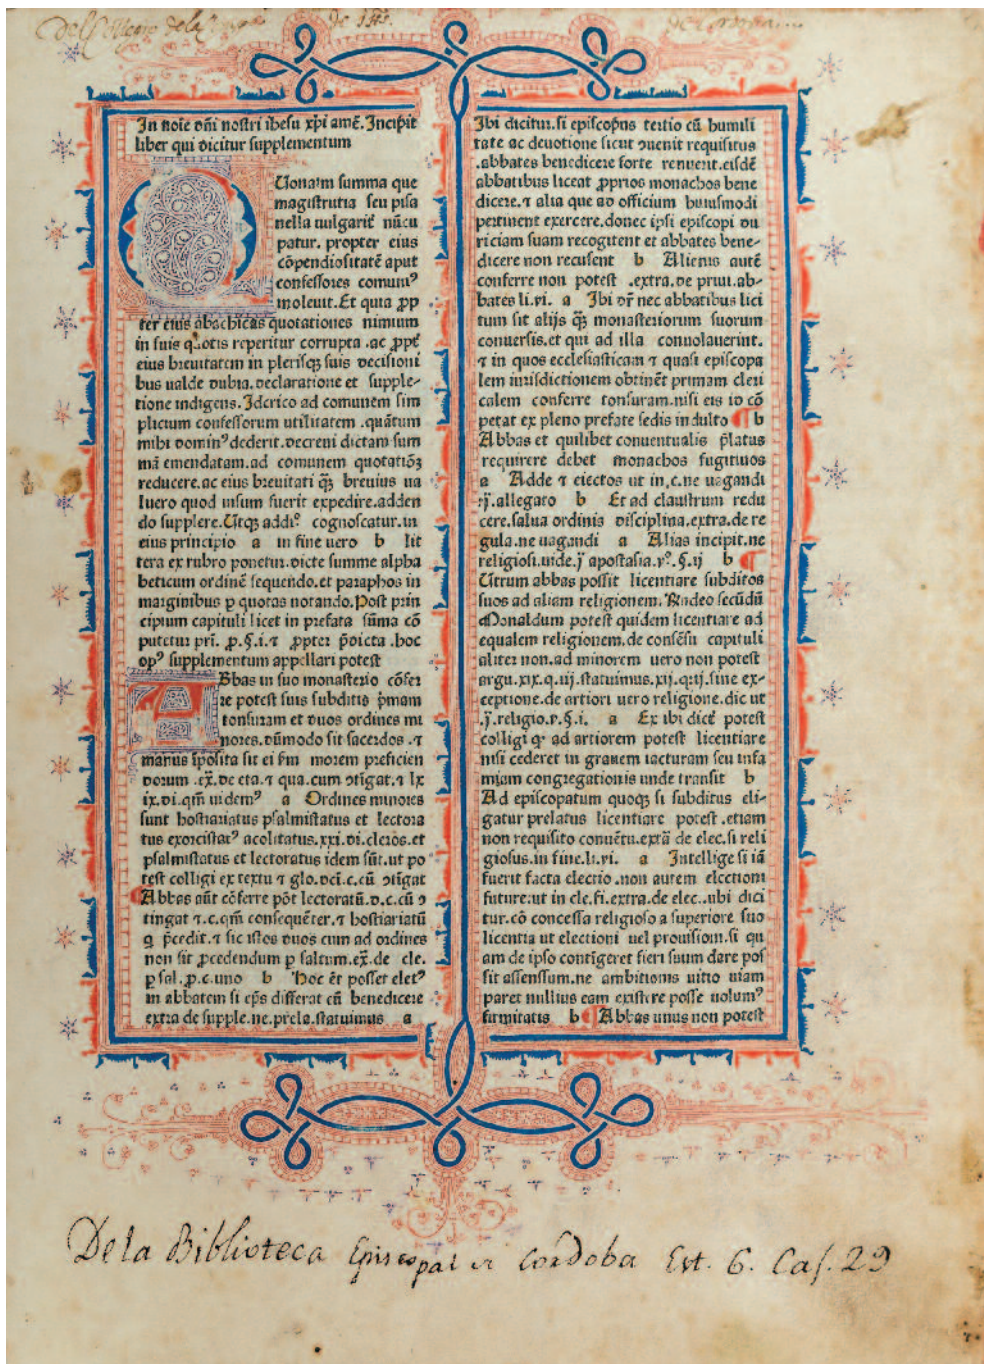 Del Collegio de la
de Jhs.
de Cordoua
In noīe dñi nostri ihesu xp̄i amē. Incipit
liber qui dicitur supplementum
QUoniam summa que
magistrutia seu pisa
nella uulgarit̄ nūcu
patur. propter eius
cōpendiositatē aput
confessores comuniꝰ
inoleuit. Et quia ꝓp
ter eius abachicas quotationes nimium
in suis quotis reperitur corrupta .ac ꝓpt̄
eius breuitatem in plerisqꝫ suis decisioni
bus ualde dubia. declaratione et supple-
tione indigens. Iderico ad comunem sim
plicium confessorum utilitatem .quātum
mihi dominꝰ dederit. decreui dictam sum
mā emendatam. ad comunem quotatiōꝫ
reducere. ac eius breuitati qꝫ breuius ua
luero quod uisum fuerit expedire. adden
do supplere. Utqꝫ addiᵒ cognoscatur. in
eius principio a in fine uero b lit
tera ex rubro ponetur. dicte summe alpha
beticum ordinē sequendo. et paraphos in
marginibus p quotas notando. Post prin
cipium capituli licet in prefata sūma cō
putetur pri. ꝓ. §. i. ⁊ ꝓpter p̄dicta .hoc
opꝰ supplementum appellari potest
ABbas in suo monasterio cōfer
re potest suis subditis p̄mam
tonsuram et duos ordines mi
nores. dūmodo sit sacerdos .⁊
manus īposita sit ei s̄m morem preficien
dorum .ex̄. de eta. ⁊ qua. cum ɔtigat. ⁊ lx
ix. di. qm̄ uidemꝰ a Ordines minores
sunt hostiariatus psalmistatus et lectora
tus exorcistatꝰ acolitatus. xxi. di. cleros. et
psalmistatus et lectoratus idem sūt. ut po
test colligi ex textu ⁊ glo. dci. c. cū ɔtigat
Abbas aūt cōferre pōt lectoratū. d. c. cū ɔ
tingat ⁊. c. qm̄ consequēter. ⁊ hostiariatū
q p̄cedit. ⁊ sic istos duos cum ad ordines
non sit ꝓcedendum p saltum. ex̄. de cle.
p sal. ꝓ. c. uno b Hoc ēt posset eletꝰ
in abbatem si ep̄s differat eū benedicere
extra de supple. ne. prela. statuimus a
Ibi dicitur. si episcopus tertio cū humili
tate ac deuotione sicut ɔuenit requisitus
.abbates benedicere forte renuerit. eisdē
abbatibus liceat ꝓprios monachos bene
dicere. ⁊ alia que ad officium huiusmodi
pertinent exercere. donec ipsi episcopi du
riciam suam recogitent et abbates bene-
dicere non recusent b Alienis autē
conferre non potest .extra. de priui. ab-
bates li. vi. a Ibi dr̄ nec abbatibus lici
tum sit alijs qꝫ monasteriorum suorum
conuersis. et qui ad illa conuolauerint.
⁊ in quos ecclesiasticam ⁊ quasi episcopa
lem iurisdictionem obtinēt primam cleri
calem conferre tonsuram. nisi eis id cō
petat ex pleno prefate sedis indulto ¶ b
Abbas et quilibet conuentualis p̄latus
requirere debet monachos fugitiuos
a Adde ⁊ eiectos ut in. c. ne uagandi
.ij. allegato b Et ad claustrum redu
cere. salua ordinis disciplina. extra. de re
gula. ne uagandi a Alias incipit. ne
religiosi. uide. j̄ apostasia. rᵒ. §. ij b ¶
Utrum abbas possit licentiare subditos
suos ad aliam religionem. Radeo secūdū
Monaldum potest quidem licentiare ad
equalem religionem. de consēsu capituli
aliter non. ad minorem uero non potest
argu. xix. q. iij. statuimus. xij. q. ij. sine ex-
ceptione. de artiori uero religione. dic ut
.j̄. religio. p. §. i. a Ex ibi dicē potest
colligi q ad artiorem potest licentiare
nisi cederet in grauem iacturam seu infa
miam congregationis unde transit b
Ad episcopatum quoqꝫ si subditus eli-
gatur prelatus licentiare potest .etiam
non requisito conuētu. extrā de elec. si reli
giosus. in fine. li. vi. a Intellige si iā
fuerit facta electio .non autem electioni
future. ut in cle. fi. extra. de elec. .ubi dici
tur. cō concessa religioso a superiore suo
licentia ut electioni uel prouisioni. si qu
am de ipso contigeret fieri suum dare pos
sit assensum. ne ambitionis uitio uiam
paret nullius eam existere posse uolumꝰ
firmitatis b ¶ Abbas unus non potest
De la Biblioteca Episcopal de Cordoba Est. 6. Caj. 29